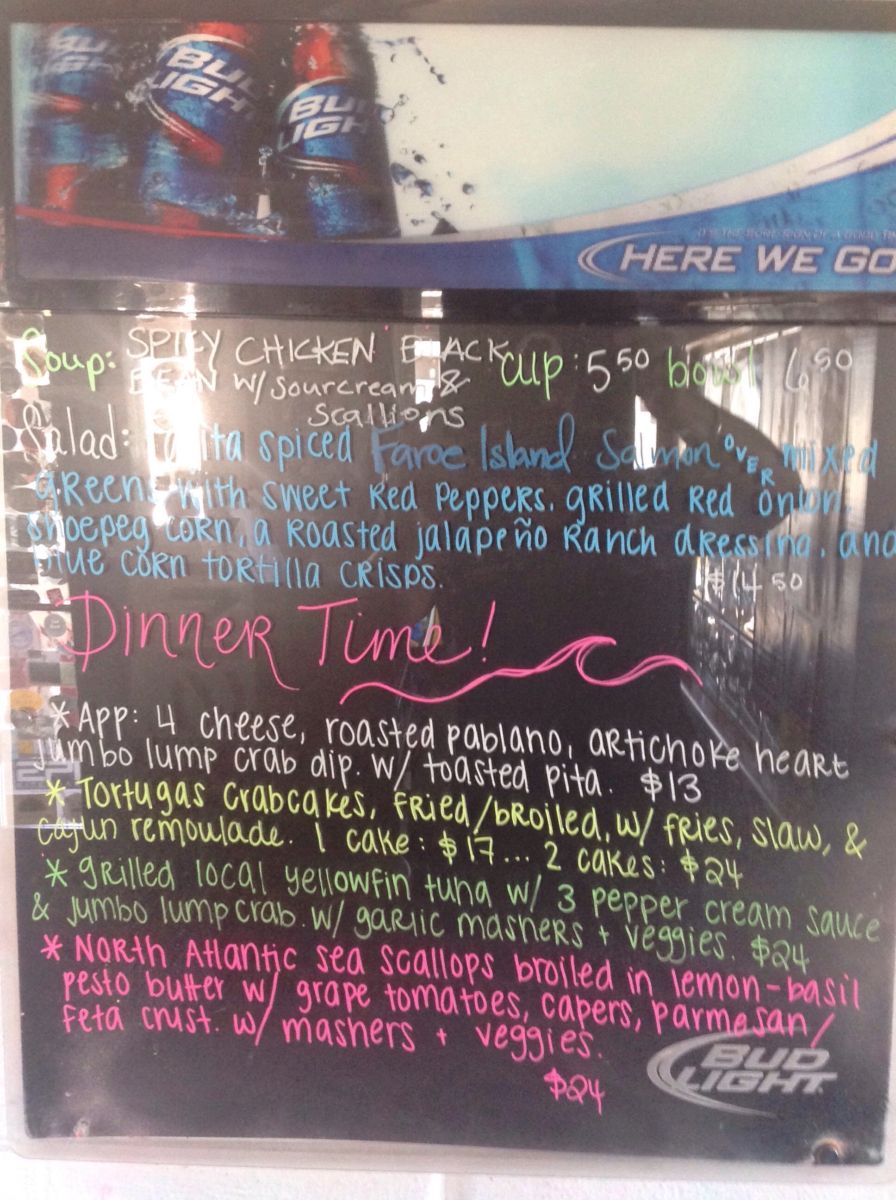 BUD LIGHT
BUD LIGHT
BUD LIGHT
HERE WE GO
Soup: SPICY CHICKEN BLACK cup: 5 50 bowl 6 50
BEAN w/ sourcream &
scallions
Salad: Fajita spiced Faroe Island Salmon OVER mixed
greens with sweet red peppers, grilled red onion,
shoepeg corn, a roasted jalapeño ranch dressing, and
blue corn tortilla crisps.
$14 50
Dinner Time!
* App: 4 cheese, roasted pablano, artichoke heart
jumbo lump crab dip. w/ toasted pita. $13
* Tortugas crabcakes, fried/broiled, w/ fries, slaw, &
cajun remoulade. 1 cake: $17... 2 cakes: $24
* grilled local yellowfin tuna w/ 3 pepper cream sauce
& jumbo lump crab. w/ garlic mashers + veggies. $24
* North Atlantic sea scallops broiled in lemon-basil
pesto butter w/ grape tomatoes, capers, parmesan/
feta crust. w/ mashers + veggies.
$24
BUD
LIGHT